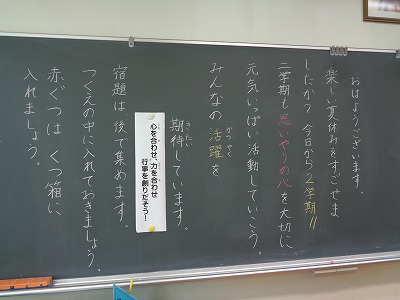 おはようございます。
楽しい夏休みをすごせま
したか？今日から2学期!!
二学期も思いやりの心を大切に
元気いっぱい活動していこう。
みんなの活躍を
かつやく
期待しています。
きたい
心を合わせ、力を合わせ
行事を創りだそう！
宿題は後で集めます。
つくえの中に入れておきましょう。
赤ぐつは くつ箱に
入れましょう。